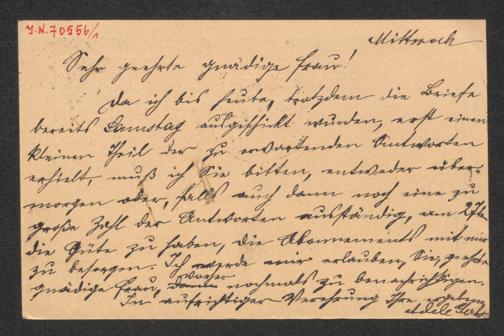 J.N. 70556/1
Mittwoch
Sehr geehrte gnädige Frau!
Da ich bis heute, trotzdem die Briefe
bereits Samstag ausgeschickt wurden, erst einen
kleinen Theil der zu erwartenden Antworten
erhielt, muß ich Sie bitten, entweder über-
morgen oder, falls auch dann noch eine zu
große Zahl der Antworten ausständig, am 27ten
die Güte zu haben, die Abonnements mit mir
zu besorgen. Ich werde mir erlauben, Sie, geehrte
gnädige Frau, vorher nochmals zu benachrichtigen.
In aufrichtiger Verehrung Ihre ergebene
Adele